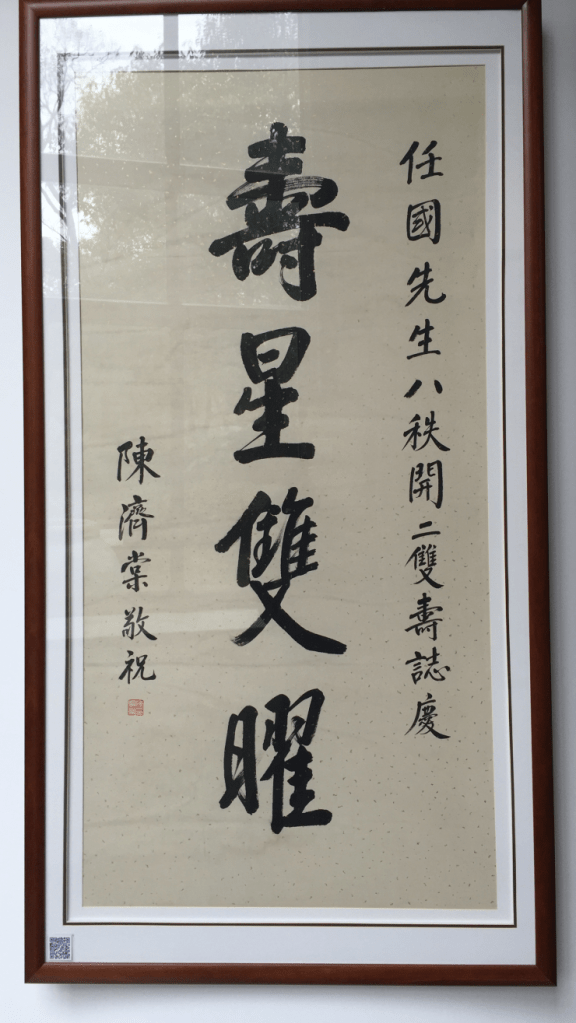 任國先生八秩開二雙壽誌慶
壽星雙曜
陳濟棠敬祝